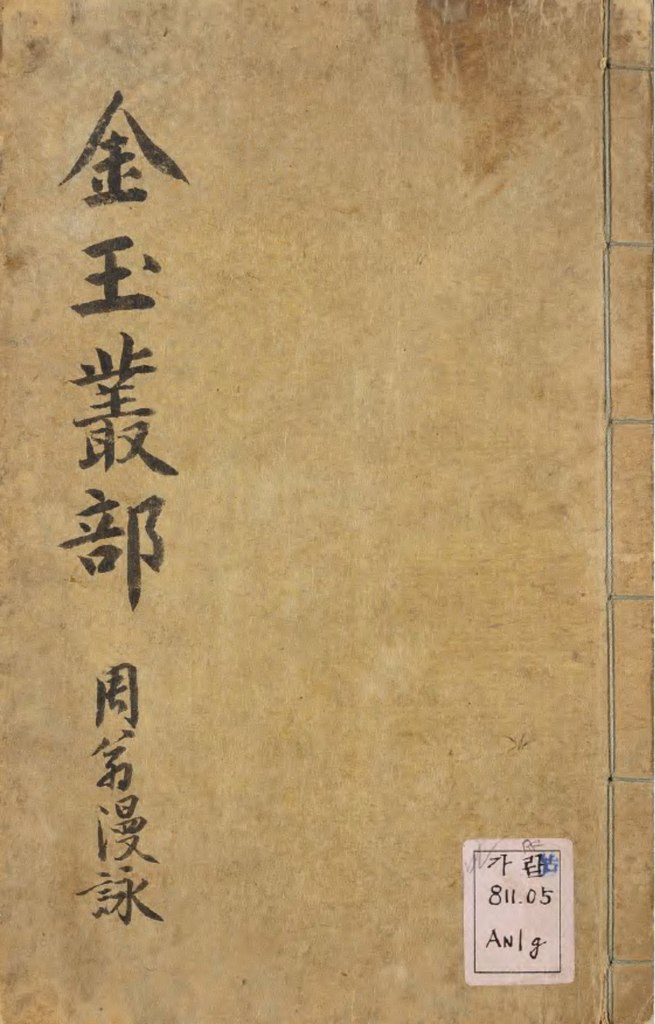 金玉叢部
周翁漫詠
가람
811.05
AN1g